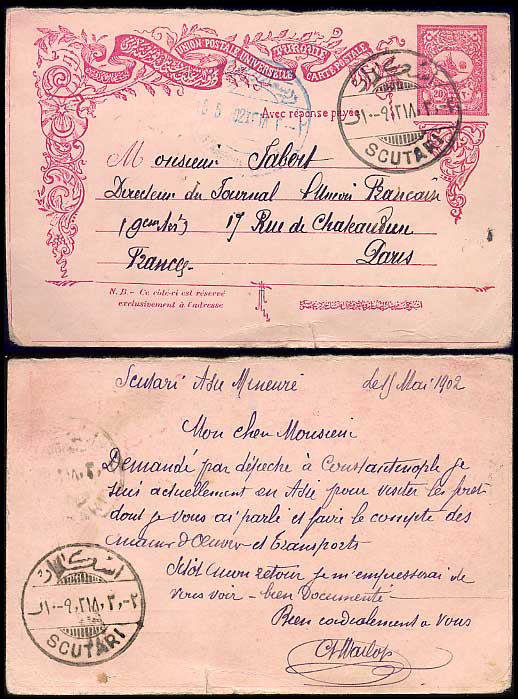 UNION POSTALE UNIVERSELLE
TURQUIE
CARTE POSTALE
20
Avec réponse payée
SCUTARI
Monsieur Jabert
Directeur du Journal l'Union Française
17 Rue de Chateaudun
Paris
France
N.B.- Ce côté-ci est réservé
exclusivement à l'adresse
Scutari Asie Mineure le 15 Mai 1902
Mon cher Monsieur
Demandé par dépeche à Constantinople je
suis actuellement en Asie pour visiter les foret
dont je vous ai parlé et faire le compte des
mains d'Oeuvre et transports
Sitôt mon retour je m'empresserai de
vous voir - bien documenté -
Bien cordialement a vous
SCUTARI